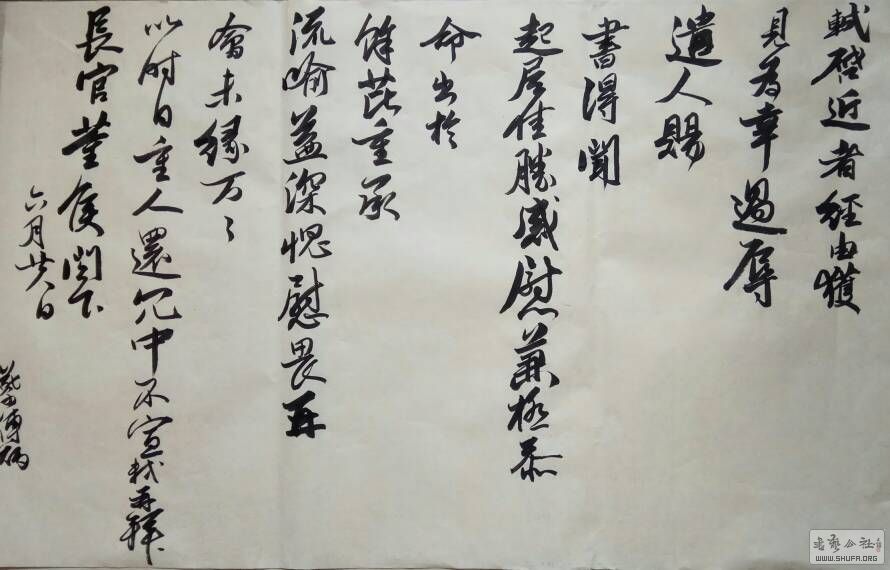 軾啓近者經由獲
見為幸過辱
遣人賜
書得聞
起居佳勝感慰兼極忝
命出於
餘芘重承
流喻益深愧慰畏再
會未緣万々
以时自重人還冗中不宣軾再拜
長官董侯閣下
六月廿八日
书艺公社
WWW.SHUFA.ORG